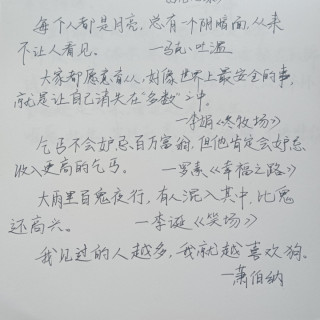 每个人都是月亮，总有一个阴暗面，从来
不让人看见。 —马克·吐温
大家都愿意省从，好像世界上最安全的事，
就是让自己消失在“多数”之中。
—李娟《冬牧场》
乞丐不会妒忌百万富翁，但他肯定会妒忌
收入更高的乞丐。 —罗素《幸福之路》
大雨里百鬼夜行，有人混入其中，比鬼
还高兴。 —李诞《笑场》
我见过的人越多，我就越喜欢狗。
—萧伯纳